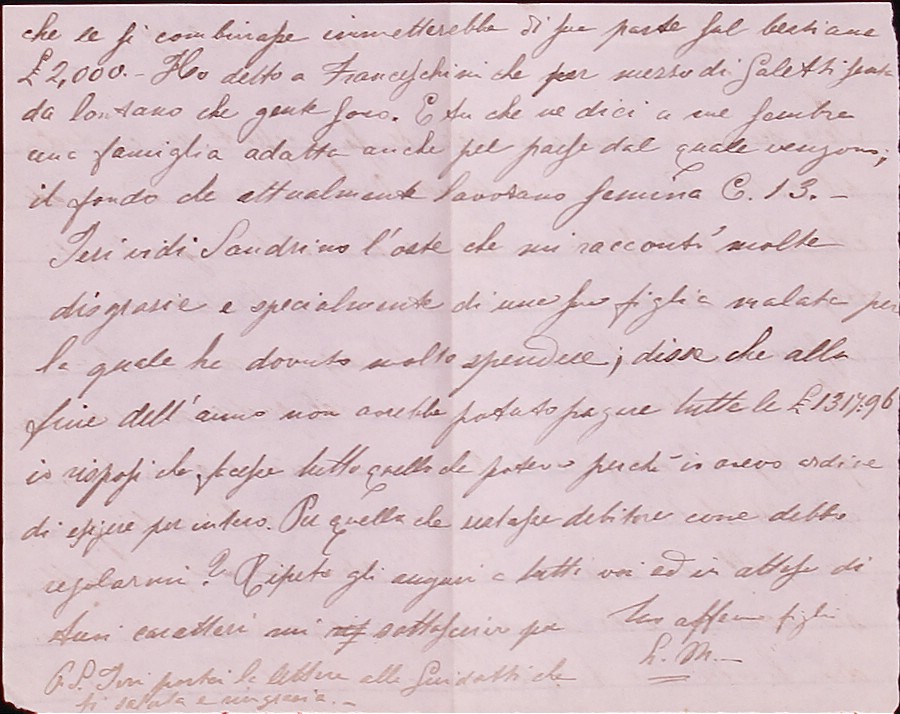 che se si combinasse immetterebbe di sua parte sul bestiame
£ 2,000.- Ho detto a Franceschini che per mezzo di Galetti senta
da lontano che gente sono. E tu che ne dici a me sembra
una famiglia adatta anche pel paese dal quale vengono;
il fondo che attualmente lavorano semina C. 13.-
Ieri vidi Sandrino l'oste che mi raccontò molte
disgrazie e specialmente di una sua figlia malata per
la quale ha dovuto molto spendere; disse che alla
fine dell'anno non avrebbe potuto pagare tutte le £ 1317.96
io risposi che facesse tutto quello che poteva perchè io avevo ordine
di esigere per intero. Per quello che restasse debitore come debbo
regolarmi? Ripeto gli auguri a tutti voi ed in attesa di
tuoi caratteri mi sottoscrivo per tuo affemo figlio
L. M.-
P.S. Ieri portai la lettera alla Guidotti che
ti saluta e ringrazia.-